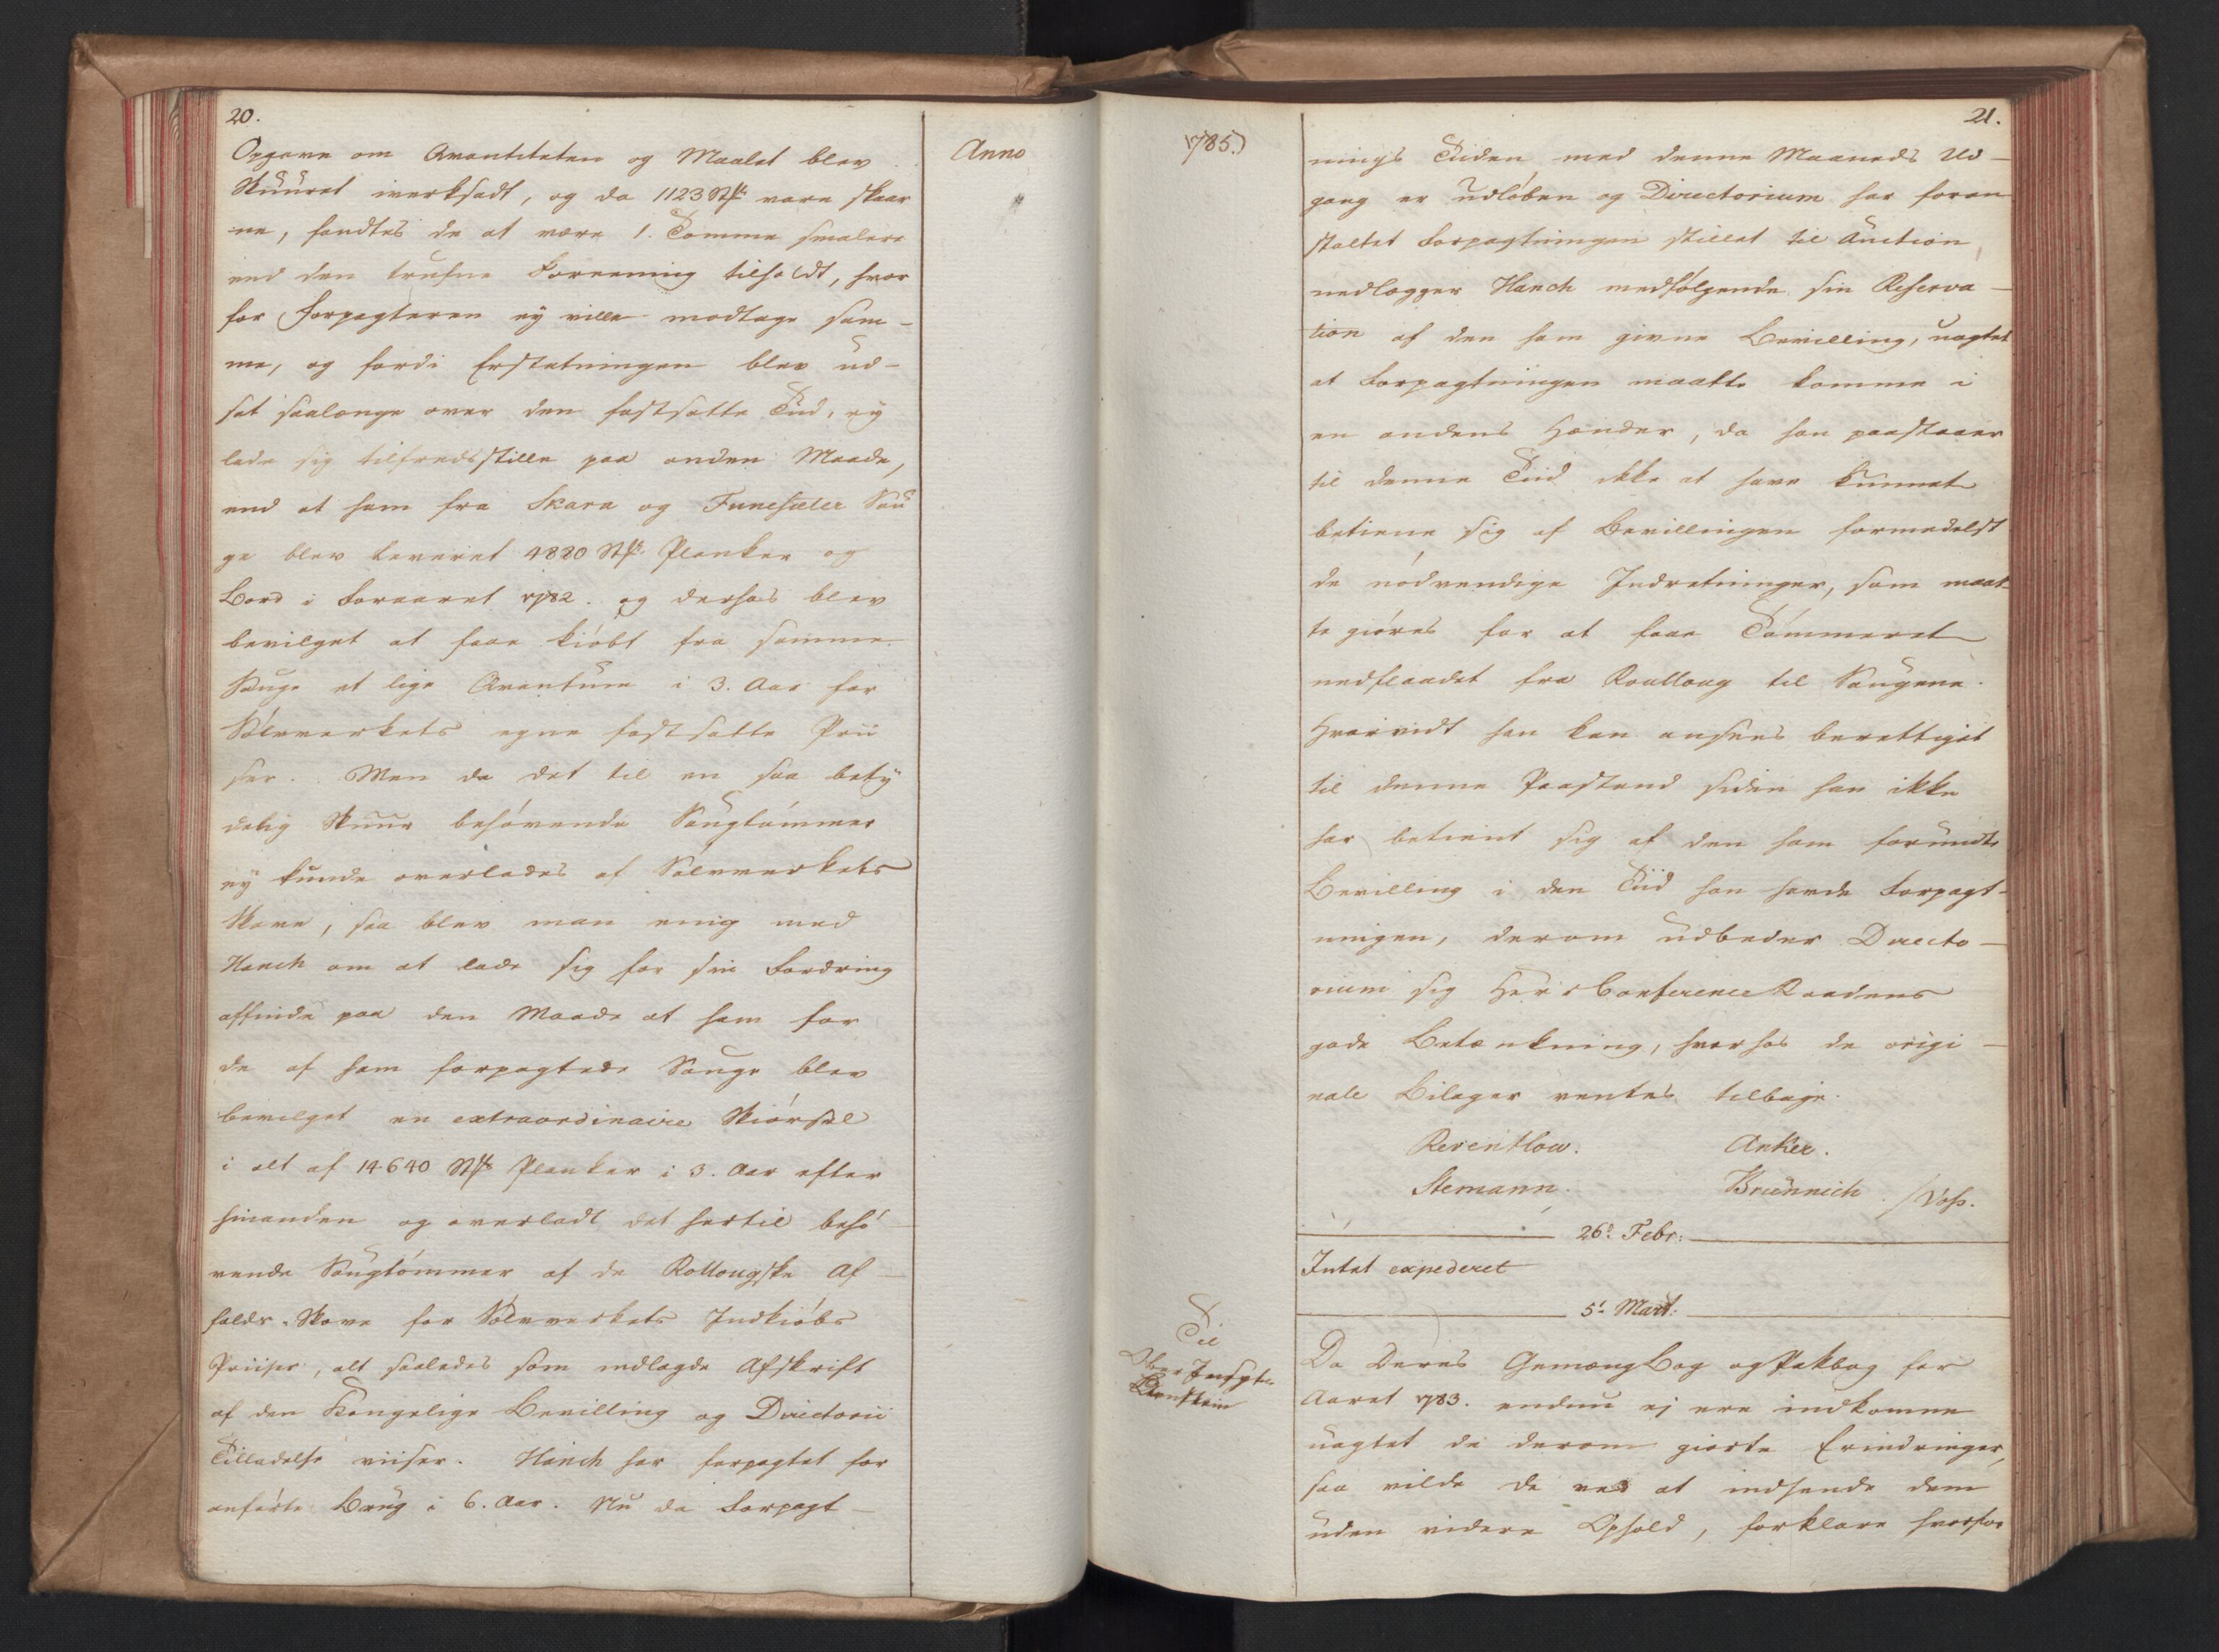 20.
Opgave om Qvantiteten og Maalet blev
Skuuret iverksadt, og da 1123 St. vare skaar
ne, fandtes de at være 1. Tomme smalere
end den trufne Foreening tilholdt, hvor
for Forpagteren ey ville modtage sam-
me, og fordi Erstatningen blev ud-
sat saalænge over den fastsatte Tiid, ey
lade sig tilfredsstille paa anden Maade,
end at ham fra Skara og Funesæter Sau
ge blev leveret 4880 St. Planker og
Bord i Foraaret 1782. og derhos blev
bevilget at faae kiöbt fra samme
Sauge et lige Qvantum i 3. Aar for
Sölvverkets egne fastsatte Prii
ser. Men da det til en saa bety
delig Skuur behövende Saugtömmer
ey kunde overlades af Sölvverkets
Skove, saa blev man enig med
Hanch om at lade sig for sin Fordring
affinde paa den Maade at ham for
de af ham forpagtede Sauge blev
bevilget en extraordinaire Skiörsel
i alt af 14640 St. Planker i 3. Aar efter
hinanden og overladt det hertil behö
vende Saugtömmer af de Rollougske Af-
falds-Skove for Sölvverkets Indkiöbs
Priiser, alt saaledes som indlagde Afskrift
af den Kongelige Bevilling og Directorii
Tilladelse viiser. Hanch har forpagtet for
anförte Brug i 6. Aar. Nu da Forpagt-
Anno
1785.)
21.
nings Tiiden med denne Maaneds Ud-
gang er udlöben og Directorium har foran
staltet Forpagtningen stillet til Auction,
nedlægger Hanch medfölgende sin Reserva-
tion af den ham givne Bevilling, uagtet
at Forpagtningen maatte komme i
en andens Hænder, da han paastaaer
til denne Tiid ikke at have kunnet
betiene sig af Bevillingen formedelst
de nödvendige Indretninger, som maat-
te giöres for at faae Tömmeret
nedflaadet fra Roulloug til Saugene.
Hvorvidt han kan ansees berettiget
til denne Paastand siden han ikke
har betient sig af den ham forundte
Bevilling i den Tiid han havde Forpagt-
ningen, derom udbeder Directo-
rium sig Herr ConferenceRaadens
gode Betænkning, hvorhos de origi-
nale Bilager ventes tilbage.
Reventlow. Anker.
Stemann. Brünnich. /Voss.
26. Febr:
Intet expederet
5. Mart:
Til
Ober Inspct.
Da Deres GemængBog og Pakbog for
Aaret 1783. endnu ej ere indkomne
uagtet de derom giorte Erindringer,
saa vilde De ved at indsende dem
uden videre Ophold, forklare hvorfor